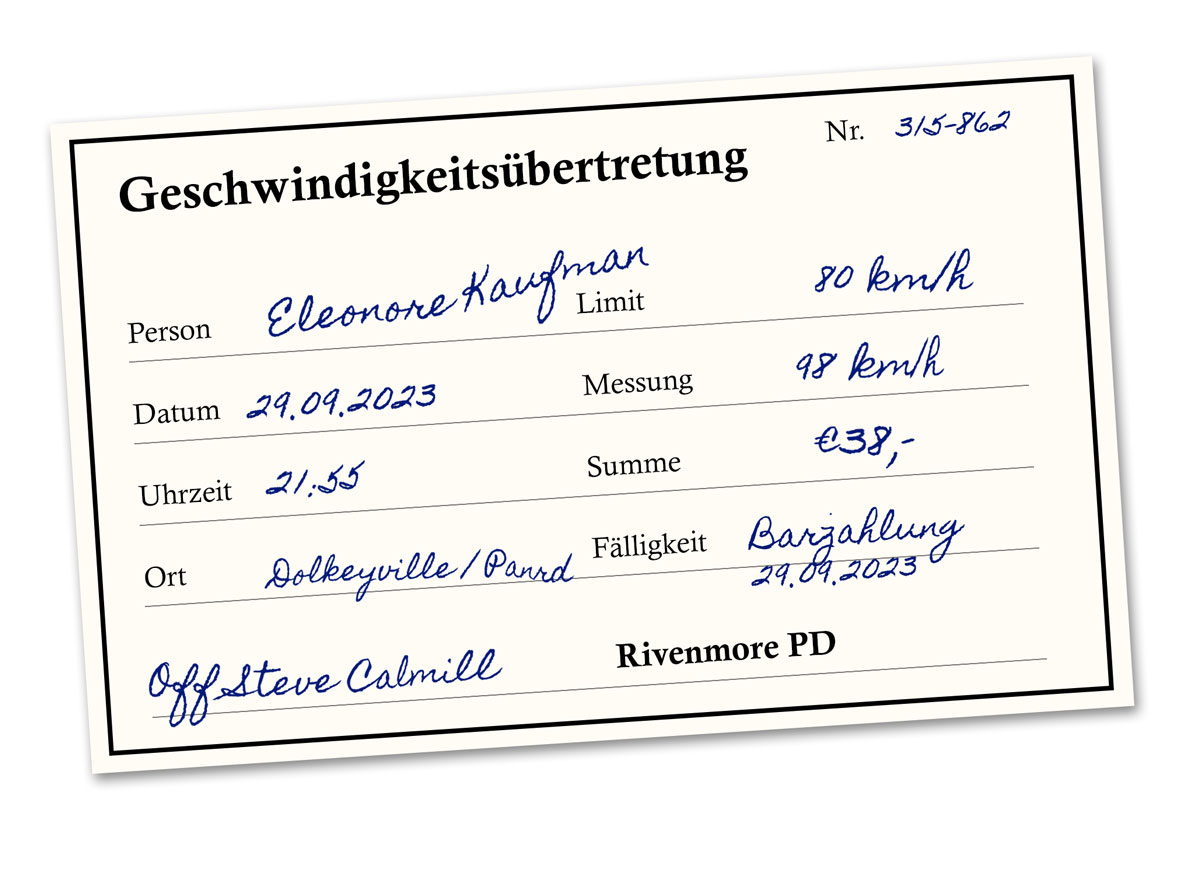 Nr. 315-862
Geschwindigkeitsübertretung
Person Eleonore Kaufman Limit 80 km/h
Datum 29.09.2023 Messung 98 km/h
Uhrzeit 21:55 Summe €38,-
Ort Dolkeyville / Panrd Fälligkeit Barzahlung
29.09.2023
Off Steve Calmill Rivenmore PD